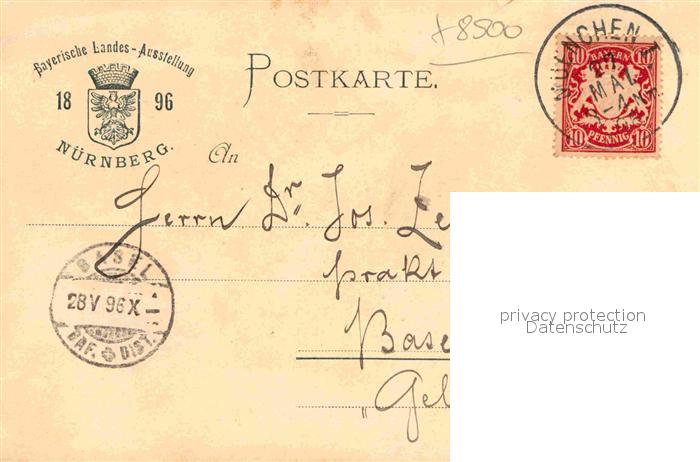 +8500
Bayerische Landes-Ausstellung
18 96
NÜRNBERG.
POSTKARTE.
MUENCHEN
MAI
10 BAYERN 10
10 PFENNIG 10
An
Herrn Dr. Jos. Ze
prakt
Base
"Gel
BASEL
28 V 96 X
BRF. DIST.
privacy protection
Datenschutz